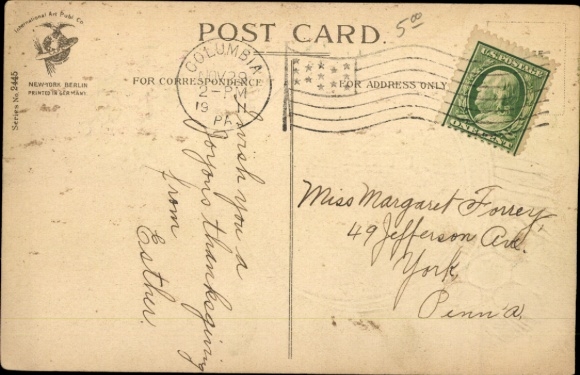 International Art Publ Co
NEW-YORK BERLIN
PRINTED IN GERMANY
Series No. 2445
POST CARD.
5.00
FOR CORRESPONDENCE
FOR ADDRESS ONLY
COLUMBIA
NOV
2-PM
19
PA
U.S. POSTAGE
ONE CENT
I wish you a
Joyous thanksgiving
from
Esther.
Miss Margaret Forrey,
49 Jefferson Ave.
York,
Penn'a.